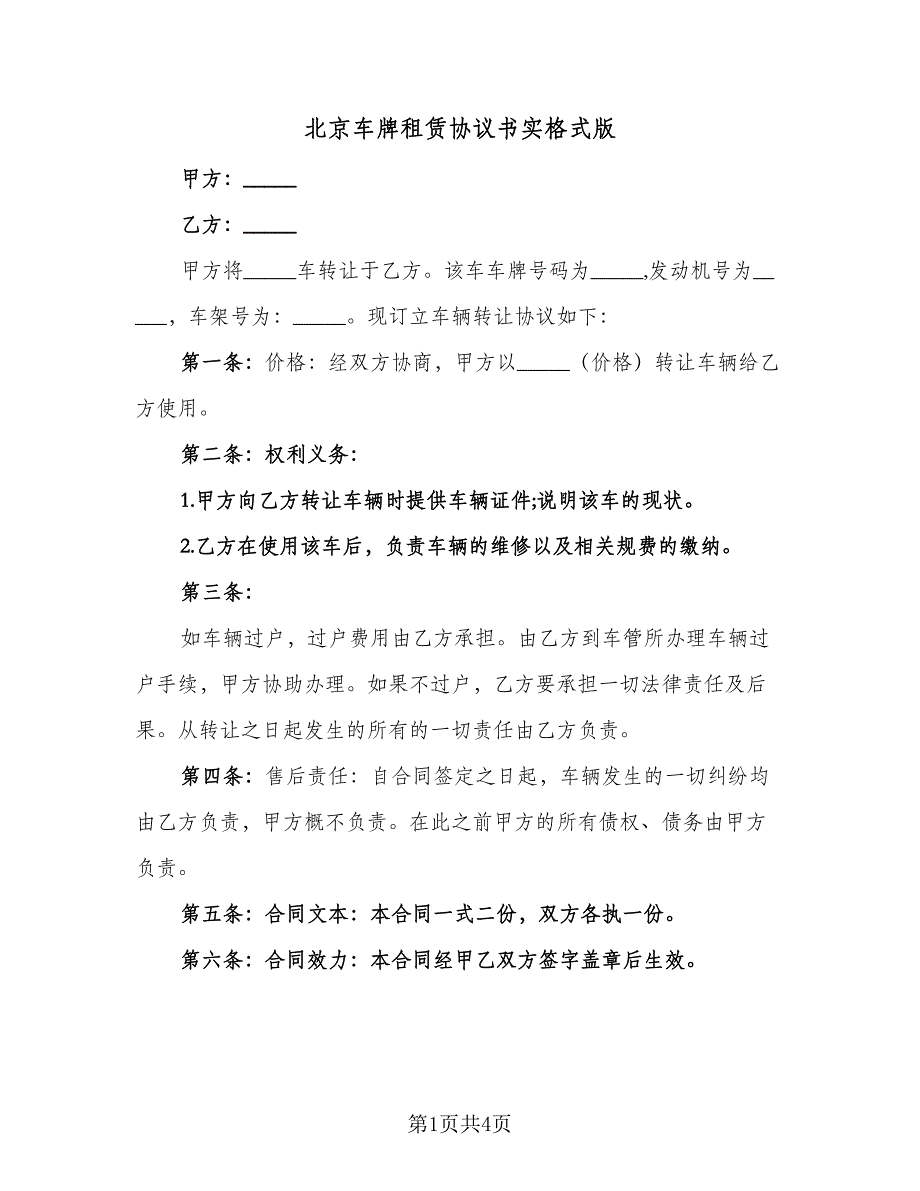 北京车牌租赁协议书实格式版
甲方：_____
乙方：_____
甲方将_____车转让于乙方。该车车牌号码为_____,发动机号为__
___，车架号为：_____。现订立车辆转让协议如下：
第一条：价格：经双方协商，甲方以_____（价格）转让车辆给乙
方使用。
第二条：权利义务：
1.甲方向乙方转让车辆时提供车辆证件;说明该车的现状。
2.乙方在使用该车后，负责车辆的维修以及相关规费的缴纳。
第三条：
如车辆过户，过户费用由乙方承担。由乙方到车管所办理车辆过
户手续，甲方协助办理。如果不过户，乙方要承担一切法律责任及后
果。从转让之日起发生的所有的一切责任由乙方负责。
第四条：售后责任：自合同签定之日起，车辆发生的一切纠纷均
由乙方负责，甲方概不负责。在此之前甲方的所有债权、债务由甲方
负责。
第五条：合同文本：本合同一式二份，双方各执一份。
第六条：合同效力：本合同经甲乙双方签字盖章后生效。
第1页共4页